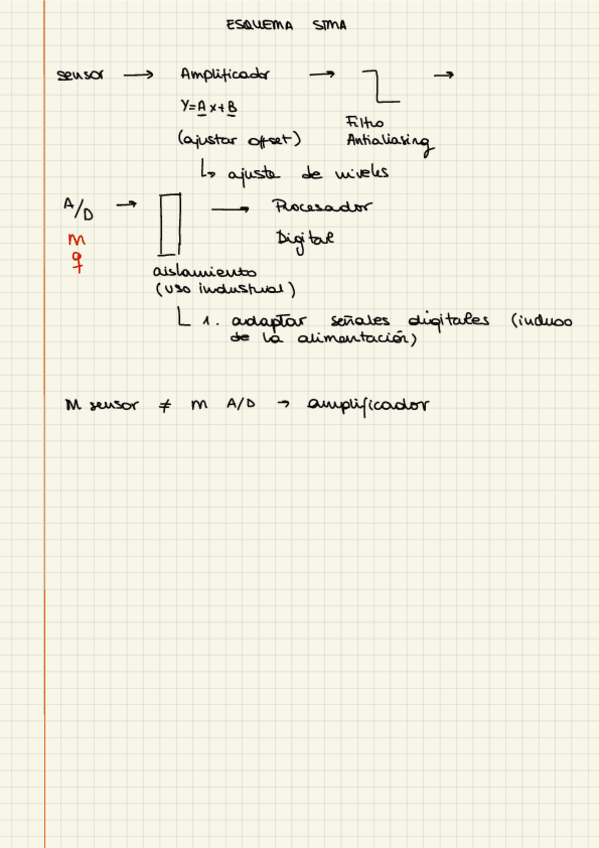 ESQUEMA STMA
sensor → Amplificador → →
Y=Ax+B
Filtro
(ajustar offset) Antialiasing
↳ ajuste de niveles
A/D → → Procesador
m Digital
q
aislamiento
(uso industrial)
1. adaptar señales digitales (incluso
de la alimentación)
M sensor ≠ m A/D → amplificador